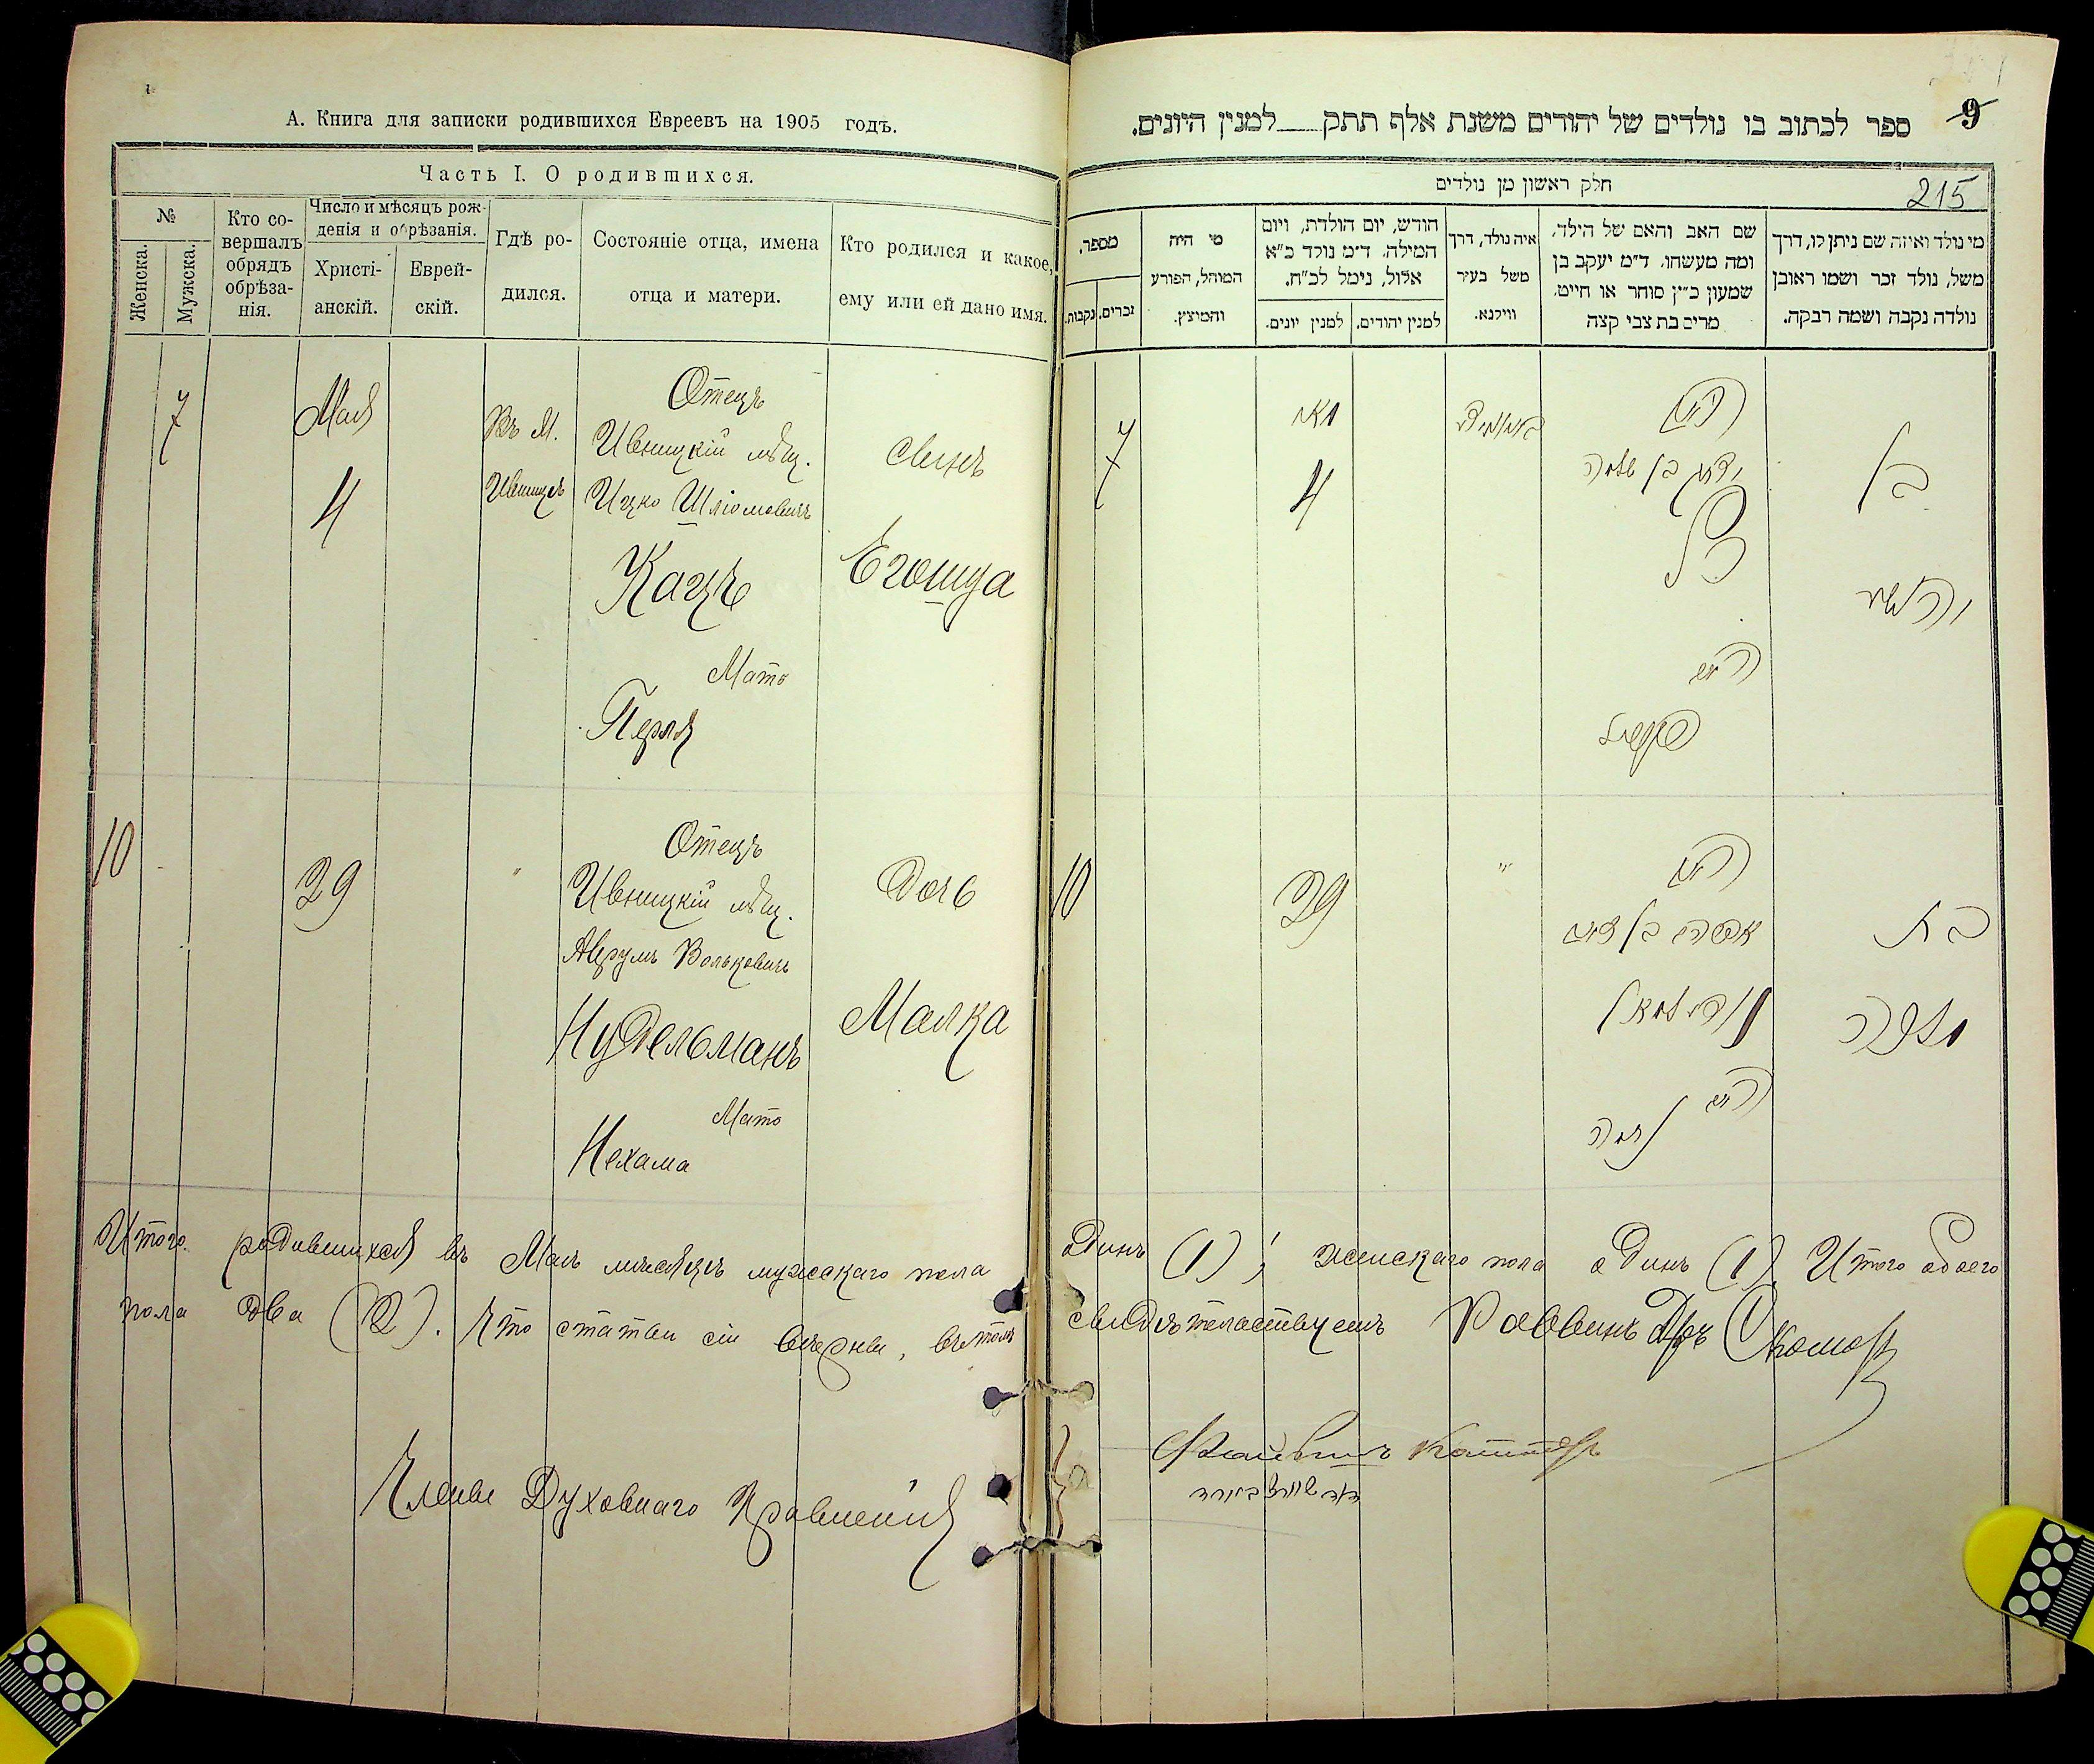 А. Книга для записки родившихся Евреевъ на 1905 годъ.
Часть I. О родившихся.
№
Женска.
Мужска.
Кто со-
вершалъ
обрядъ
обрѣза-
нія.
Число и мѣсяцъ рож-
денія и обрѣзанія.
Христі-
анскій.
Еврей-
скій.
Гдѣ ро-
дился.
Состояніе отца, имена
отца и матери.
Кто родился и какое,
ему или ей дано имя.
7
Мая
4
Въ м.
Ивницѣ
Отецъ
Ивницкій мѣщ.
Ицко Шліомовичъ
Кацъ
Мать
Перля
Сынъ
Егошуа
10
29
"
Отецъ
Ивницкій мѣщ.
Аврумъ Вольковичъ
Нудельманъ
Мать
Нехама
Дочь
Малка
Итого родившихся въ Маѣ мѣсяцѣ мужскаго пола
пола два (2). Что статьи сіи вѣрны, въ томъ
Члены Духовнаго Правленія
9
ספר לכתוב בו נולדים של יהודים משנת אלף תתק למנין היונים.
215
חלק ראשון מן נולדים
מי נולד ואיזה שם ניתן לו, דרך
משל, נולד זכר ושמו ראובן
נולדה נקבה ושמה רבקה.
שם האב והאם של הילד,
ומה מעשהו. ד״מ יעקב בן
שמעון כ״ץ סוחר או חייט.
מרים בת צבי קצה
איה נולד, דרך
משל בעיר
ווילנא.
חודש, יום הולדת, ויום
המילה. ד״מ נולד כ״א
אלול, נימל לכ״ח.
למנין יהודים.
למנין יונים.
מי היה
המוהל, הפורע
והמוצץ.
מספר.
זכרים.
נקבות.
7
מאי
4
האב
יצחק בן שלמה
כץ
האם
פערל
בן
יהושע
10
29
"
האב
אברהם בן זאב
נודילמאן
האם נחמה
בת
מלכה
одинъ (1); женскаго пола одинъ (1). Итого обоего
свидѣтельствуемъ Раввинъ